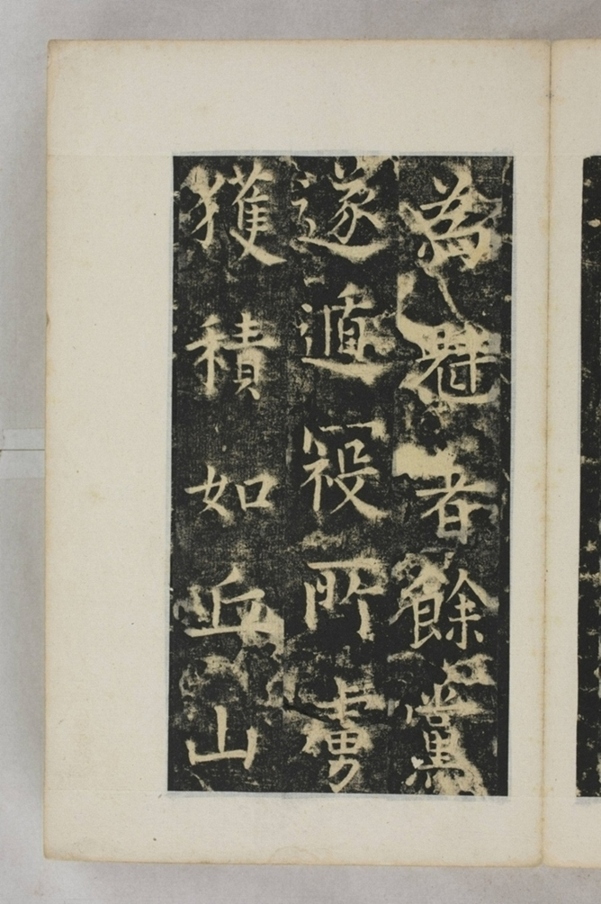 為者餘黨
遂遁所虜
獲積如丘山